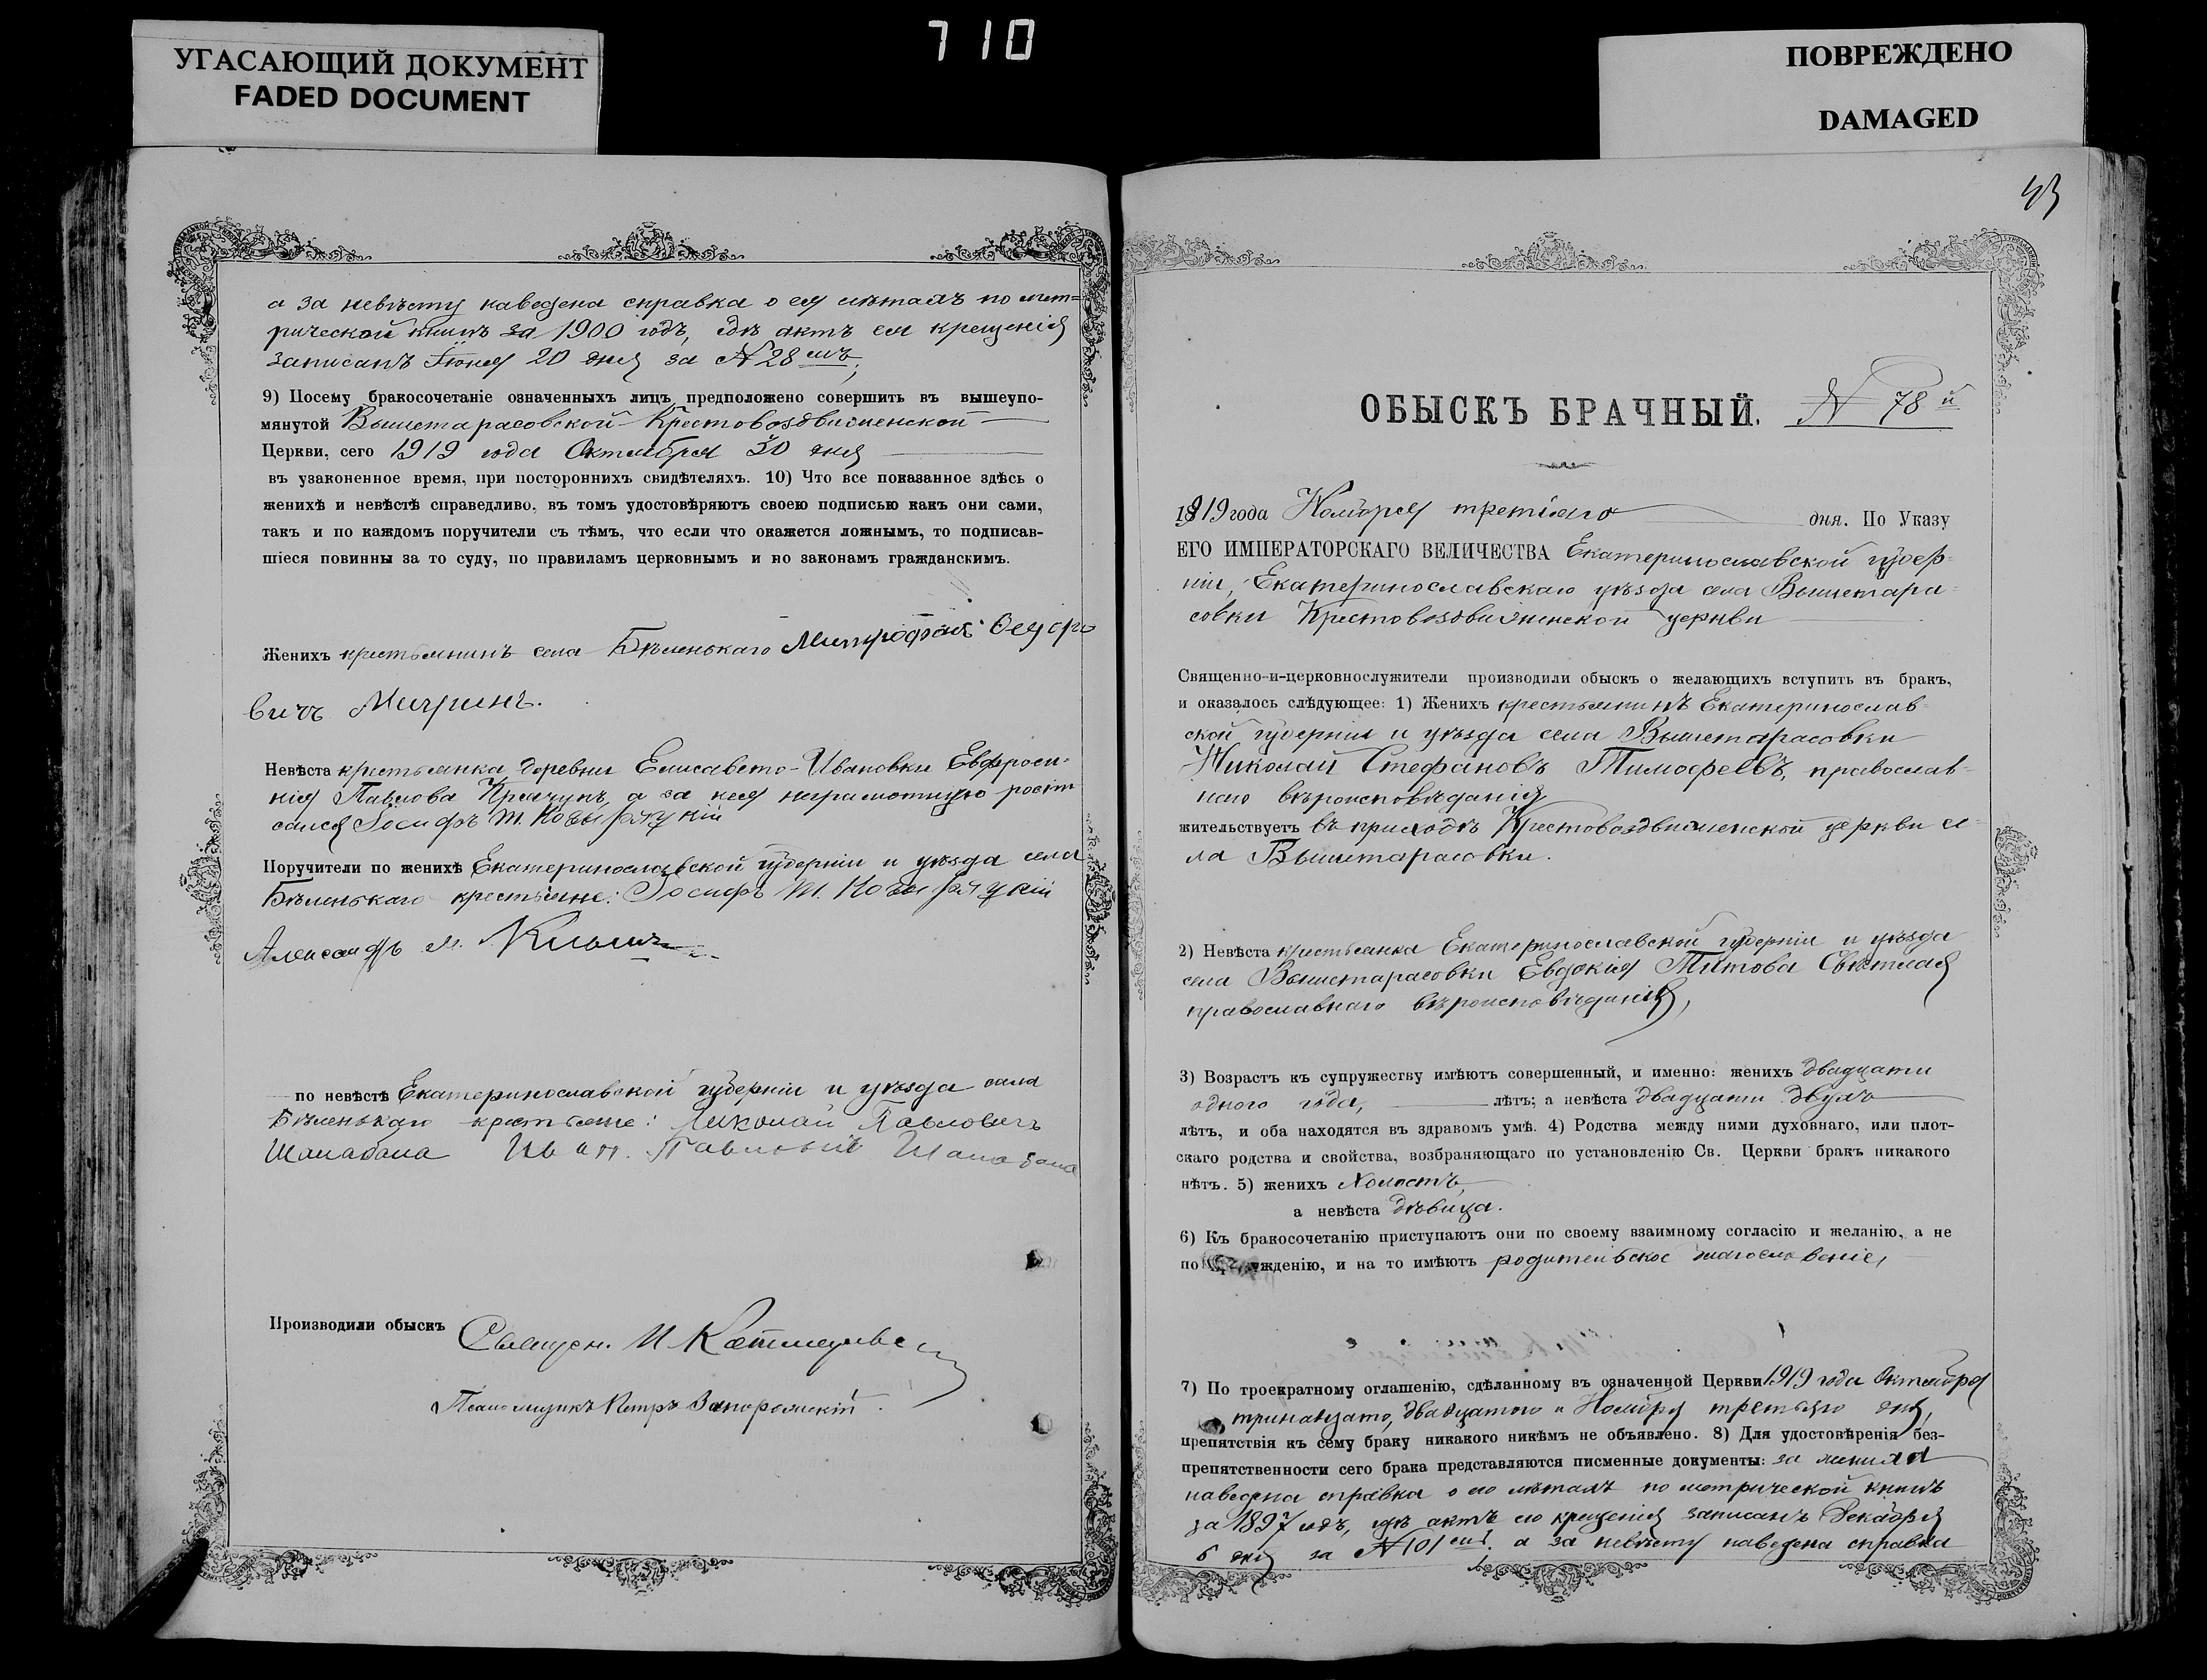 710
УГАСАЮЩИЙ ДОКУМЕНТ
FADED DOCUMENT
ПОВРЕЖДЕНО
DAMAGED
а за невѣсту наведена справка о ея лѣтахъ по мет=
рической книгѣ за 1900 годъ, гдѣ актъ ея крещенія
записанъ Іюня 20 дня за № 28 емъ;
9) Посему бракосочетаніе означенныхъ лицъ предположено совершить въ вышеупо-
мянутой Вышетарасовской Крестовоздвиженской
Церкви, сего 1919 года Октября 30 дня
въ узаконенное время, при постороннихъ свидѣтеляхъ. 10) Что все показанное здѣсь о
женихѣ и невѣстѣ справедливо, въ томъ удостовѣряютъ своею подписью какъ они сами,
такъ и по каждомъ поручители съ тѣмъ, что если что окажется ложнымъ, то подписав-
шіеся повинны за то суду, по правиламъ церковнымъ и по законамъ гражданскимъ.
Женихъ крестьянинъ села Бѣленькаго Митрофанъ
вичъ
Невѣста крестьянка деревни Елисавето-Ивановки Евфроси-
нія Павлова а за нея неграмотную
Іосифъ
Поручители по женихѣ Екатеринославской губерніи и уѣзда села
Бѣленькаго крестьяне: Іосифъ
Александръ
по невѣстѣ Екатеринославской губерніи и уѣзда села
Бѣленькаго крестьяне: Николай Павловичъ
Шаладала Иван. Павловичъ
Производили обыскъ Священ. И
Псаломщикъ Петръ Запорожскій
43
ОБЫСКЪ БРАЧНЫЙ. № 78 й
1919 года Ноября третіяго дня. По Указу
ЕГО ИМПЕРАТОРСКАГО ВЕЛИЧЕСТВА Екатеринославской губер-
ніи, Екатеринославскаго уѣзда села Вышетара-
совки Крестовоздвиженской церкви
Священно-и-церковнослужители производили обыскъ о желающихъ вступить въ бракъ,
и оказалось слѣдующее: 1) Женихъ крестьянинъ Екатеринослав-
ской губерніи и уѣзда села Вышетарасовки
Николай Стефановъ Тимофеевъ, православ-
наго вѣроисповѣданія
жительствуетъ въ приходѣ Крестовоздвиженской церкви се-
ла Вышетарасовки.
2) Невѣста крестьянка Екатеринославской губерніи и уѣзда
села Вышетарасовки Евдокія Титова Свѣтлая
православнаго вѣроисповѣданія,
3) Возрастъ къ супружеству имѣютъ совершенный, и именно: женихъ двадцати
одного года, лѣтъ; а невѣста двадцати двухъ
лѣтъ, и оба находятся въ здравомъ умѣ. 4) Родства между ними духовнаго, или плот-
скаго родства и свойства, возбраняющаго по установленію Св. Церкви бракъ никакого
нѣтъ. 5) женихъ холостъ,
а невѣста дѣвица.
6) Къ бракосочетанію приступаютъ они по своему взаимному согласію и желанію, а не
по уждению, и на то имѣютъ родительское благословеніе,
7) По троекратному оглашенію, сдѣланному въ означенной Церкви 1919 года Октября
тринадцато, двадцатого и Ноября третьяго дня,
препятствія къ сему браку никакого никѣмъ не объявлено. 8) Для удостовѣренія без-
препятственности сего брака представляются писменные документы: за жениха
наведена справка о его лѣтахъ по метрической книгѣ
за 1897 годъ, гдѣ актъ его крещенія записанъ Декабря
6 дня за № 101 емъ. а за невѣсту наведена справка